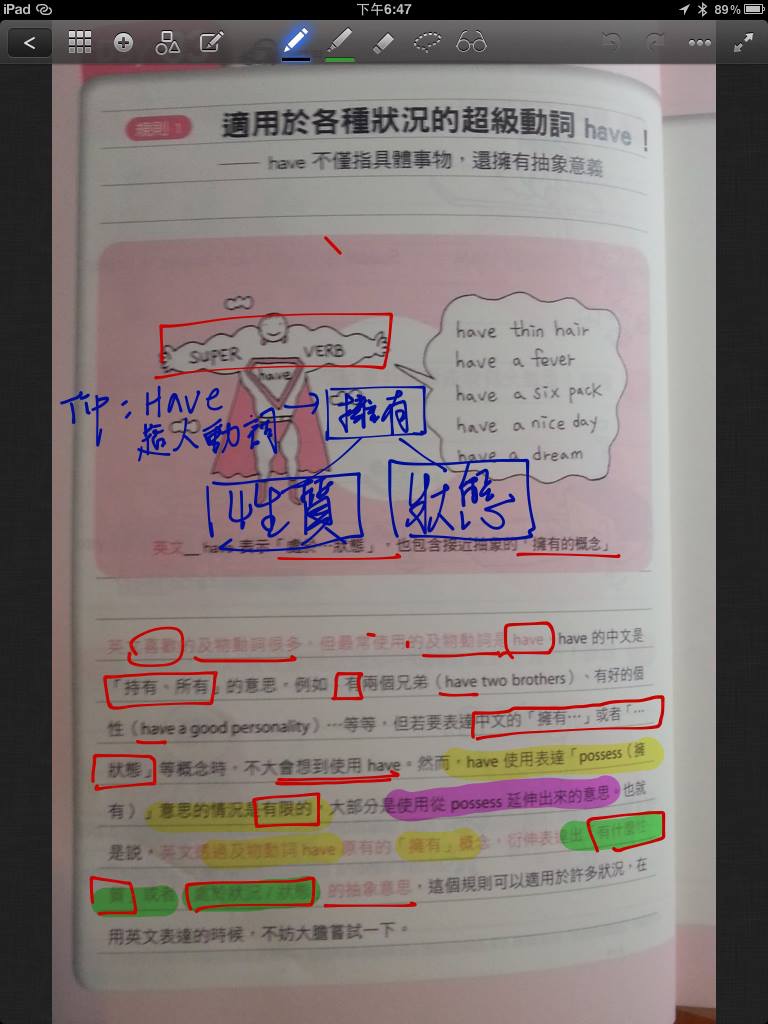 iPad
下午6:47
89%
規則 1
適用於各種狀況的超級動詞 have！
—— have 不僅指具體事物，還擁有抽象意義
SUPER VERB
have
have thin hair
have a fever
have a six pack
have a nice day
have a dream
Tip：Have → 擁有
超人動詞
性質 狀態
英文 have 表示「處於…狀態」，也包含接近抽象的「擁有的概念」
英文喜歡的及物動詞很多，但最常使用的及物動詞是 have。have 的中文是
「持有、所有」的意思。例如 有兩個兄弟（have two brothers）、有好的個
性（have a good personality）…等等，但若要表達中文的「擁有…」或者「…
狀態」等概念時，不大會想到使用 have。然而，have 使用表達「possess（擁
有）」意思的情況是有限的，大部分是使用從 possess 延伸出來的意思。也就
是說，英文透過及物動詞 have 原有的「擁有」概念，衍伸表達出「有什麼性
質」或者「處於狀況／狀態」的抽象意思，這個規則可以適用於許多狀況，在
用英文表達的時候，不妨大膽嘗試一下。